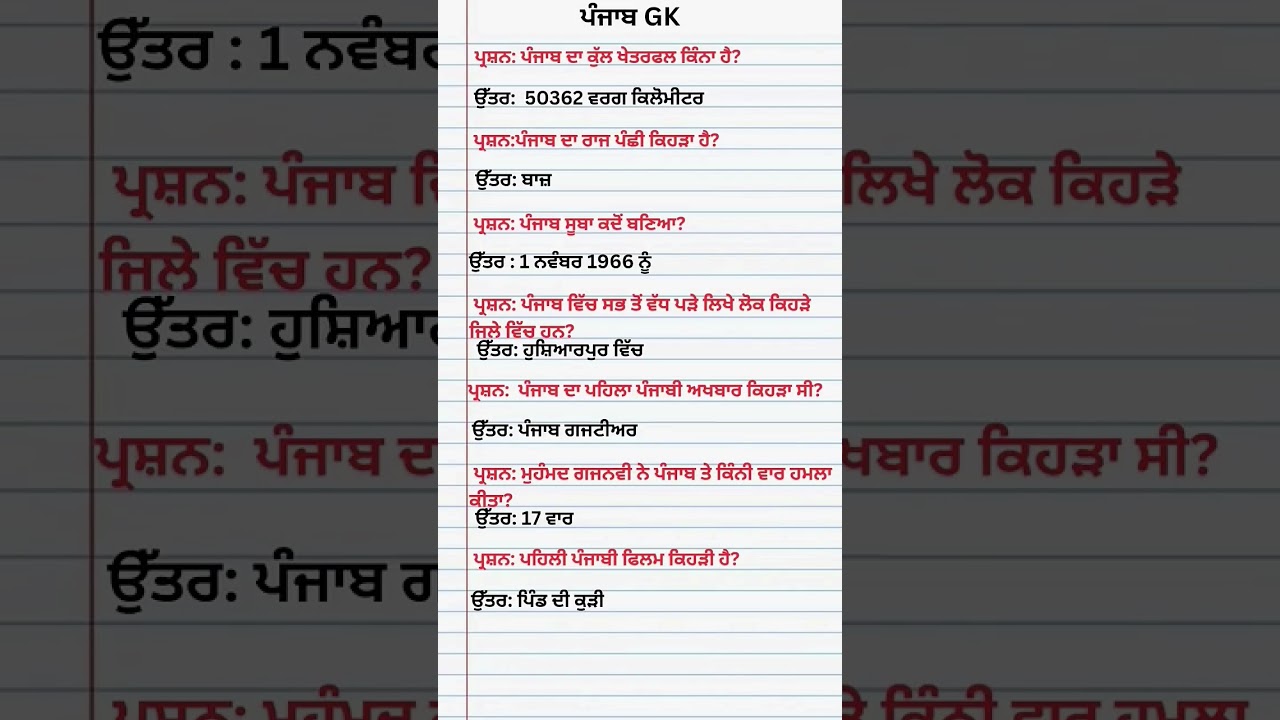 ਪੰਜਾਬ GK
ਪ੍ਰਸ਼ਨ: ਪੰਜਾਬ ਦਾ ਕੁੱਲ ਖੇਤਰਫਲ ਕਿੰਨਾ ਹੈ?
ਉੱਤਰ: 50362 ਵਰਗ ਕਿਲੋਮੀਟਰ
ਪ੍ਰਸ਼ਨ:ਪੰਜਾਬ ਦਾ ਰਾਜ ਪੰਛੀ ਕਿਹੜਾ ਹੈ?
ਉੱਤਰ: ਬਾਜ਼
ਪ੍ਰਸ਼ਨ: ਪੰਜਾਬ ਸੂਬਾ ਕਦੋਂ ਬਣਿਆ?
ਉੱਤਰ : 1 ਨਵੰਬਰ 1966 ਨੂੰ
ਪ੍ਰਸ਼ਨ: ਪੰਜਾਬ ਵਿੱਚ ਸਭ ਤੋਂ ਵੱਧ ਪੜੇ ਲਿਖੇ ਲੋਕ ਕਿਹੜੇ
ਜਿਲੇ ਵਿੱਚ ਹਨ?
ਉੱਤਰ: ਹੁਸ਼ਿਆਰਪੁਰ ਵਿੱਚ
ਪ੍ਰਸ਼ਨ: ਪੰਜਾਬ ਦਾ ਪਹਿਲਾ ਪੰਜਾਬੀ ਅਖਬਾਰ ਕਿਹੜਾ ਸੀ?
ਉੱਤਰ: ਪੰਜਾਬ ਗਜਟੀਅਰ
ਪ੍ਰਸ਼ਨ: ਮੁਹੰਮਦ ਗਜਨਵੀ ਨੇ ਪੰਜਾਬ ਤੇ ਕਿੰਨੀ ਵਾਰ ਹਮਲਾ
ਕੀਤਾ?
ਉੱਤਰ: 17 ਵਾਰ
ਪ੍ਰਸ਼ਨ: ਪਹਿਲੀ ਪੰਜਾਬੀ ਫਿਲਮ ਕਿਹੜੀ ਹੈ?
ਉੱਤਰ: ਪਿੰਡ ਦੀ ਕੁੜੀ